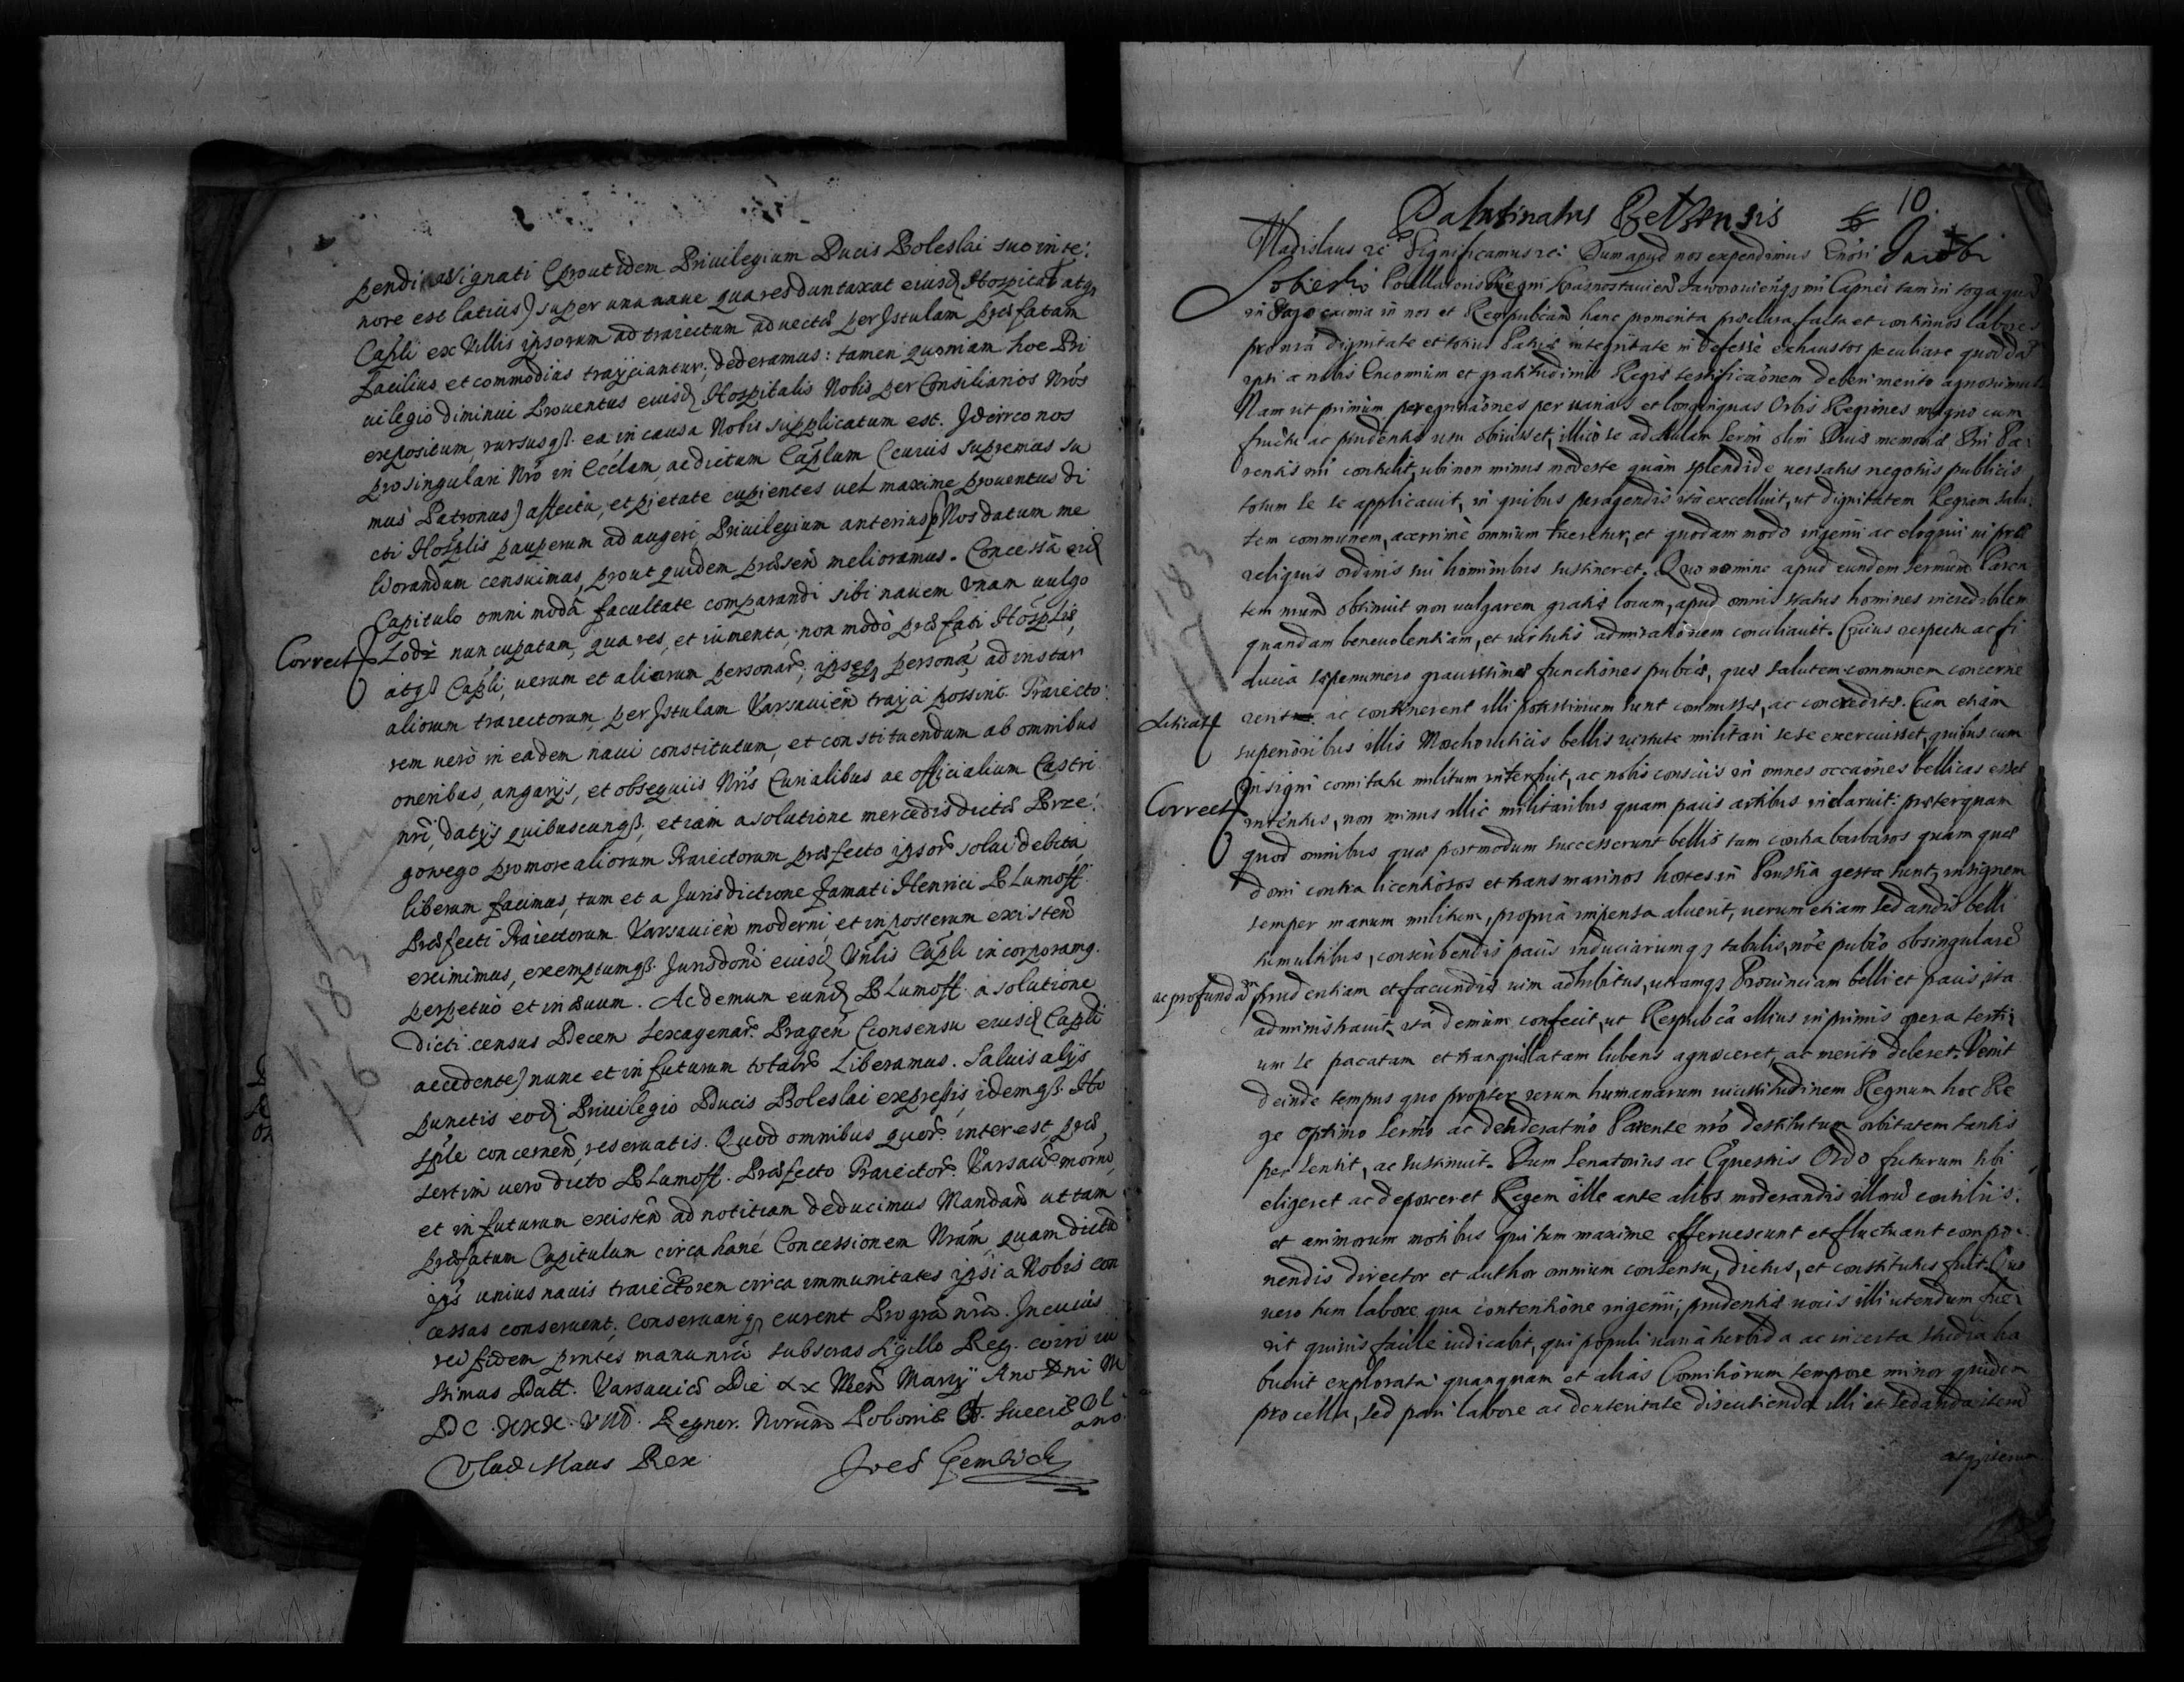 pendi assignati (prout idem Priuilegium Ducis Boleslai suo in te:
nore est latius) super una naue qua res duntaxat eiusd Hospicat atq
Capli ex Villis ipsorum ad traiectum aduectæ per Istulam præfatam
facilius et commodius traijciantur, dederamus: tamen quoniam hoc Pri
uilegio diminui Prouentus eiusd Hospitalis Nobis per Consiliarios Nros
expositum, rursusqȝ ea in causa Nobis supplicatum est. Idcirco nos
pro singulari Nro in Ecclam, ac dictum Caplum (cuius supremus su
mus Patronus) affectu, et pietate cupientes uel maxime prouentus di
cti Hosplis pauperum adaugeri, Priuilegium anterius p Nos datum me
liorandum censuimus, prout quidem præsen melioramus. Concessa eid
Capitulo omni moda facultate comparandi sibi nauem vnam uulgo
Correct Lodz nuncupatam, qua res, et iumenta, non modo præfati Hosplis,
atqȝ Capli, uerum et aliorum personar, ipseqȝ personæ, ad instar
aliorum traiectorum, per Istulam Varsauien traijci possint. Traiecto
rem uero in eadem naui constitutum, et constituendum ab omnibus
oneribus, angarijs, et obsequiis Nris Curialibus ac officialium Castri
nri, datijs quibuscunqȝ, etiam a solutione mercedis dictæ Prze:
gowego pro more aliorum Traiectorum præfecto ipsor solui debita
liberum facimus, tum et a Jurisdictione famati Henrici Plumoff
Præfecti Traiectorum Varsauien moderni, et in posterum existen
eximimus, exemptumqȝ Jurisdoni eiusd Vnlis Capli incorporamq.
perpetuo et in æuum. Ac demum eund Plumoff a solutione
dicti census Decem sexagenar Pragen (consensu eiusd Capli
accedente) nunc et in futurum totalr Liberamus. Saluis alijs
punctis eod Priuilegio Ducis Boleslai expressis, idemqȝ Ho
sple concernen, reseruatis. Quod omnibus quor interest, præ
sertim uero dicto Plumoff Præfecto Traiector Varsauien morno,
et in futurum existen ad notitiam deducimus Mandan ut tam
præfatum Capitulum circa hanc Concessionem Nram, quam dictu
ijs unius nauis traiectorem circa immunitates ipsi a Nobis con
cessas conseruent, conseruariqȝ curent Pro gra nra. In cuius
rei fidem prntes manu nra subscras Sigillo Reg. coiri iu
ssimus Datt. Varsauiæ Die XX Mens Marij Ano Dni M
DC. XXXVIIIo. Regnor. Nrorum Poloniæ Sueciæ
ano
Vladislaus Rex
f 183
f 6
Palatinatus Belzensis 10
Vladislaus rc Significamus rc: Dum apud nos expendimus Gnosi Jacobi
Sobieski Pocillatoris Regni Krasnostauien Jaworouienqȝ mi Capnei tam in toga qua
in sago eximia in nos et Rempublicam hanc promerita præclara facta et continuos labores
pro nra dignitate et totius Patriæ integritate indefessè exhaustos peculiare quodda
ipsi a nobis Encomium et gratitudinis Regiæ testificaonem deberi merito agnoscimus
Nam ut primum peregrinaones per uarias et longinquas Orbis Regiones magno cum
fructu ac prudentiæ usu obiuisset, illico se ad Aulam Sermi olim Diuæ memoriæ Dni Pa
rentis nri contulit, ubi non minus modeste quàm splendide uersatus negotiis publicis
totum se se applicauit, in quibus peragendis ita excelluit, ut dignitatem Regiam salu:
tem communem, acerrime omnium tueretur, et quodam modo ingenii ac eloquii ui præ
reliquis ordinis sui hominibus sustineret. Quo nomine apud eundem sermum Paren
tem nrum obtinuit non uulgarem gratiæ locum, apud omnis status homines incredibilem
quandam beneuolentiam, et uirtutis admirationem conciliauit. Cuius respectu ac fi
ducia sæpenumero grauissimæ functiones publcæ, quæ salutem communem concerne
rent ac continerent illi potissimum sunt commissæ, ac concreditæ. Cum etiam
superioribus illis Moschouiticis bellis uirtute militari sese exercuisset, quibus cum
insigni comitatu militum interfuit, ac nobis consciis in omnes occaones bellicas esset
Correct intentus, non minus illic militaribus quam pacis artibus inclaruit: præterquam
quod omnibus quæ postmodum successerunt bellis tam contra barbaros quàm quæ
domi contra licentiosos et transmarinos hostes in Prussia gesta sunt, insignem
semper manum militum, propria impensa aluerit, uerum etiam sedandis belli
tumultibus, conscribendis pacis induciarumqȝ tabulis, noe pubco ob singulare
ac profundam prudentiam et facundiæ uim adhibitus, utramqȝ Prouinciam belli et pacis, ita
administrauit, ita demum confecit, ut Respublca illius inprimis opera
um se pacatam et tranquillatam lubens agnosceret, ac merito deberet. Venit
deinde tempus quo propter rerum humanarum uicissitudinem Regnum hoc Re
ge optimo sermo ac desideratmo Parente nro destitutum orbitatem tantis
persensit, ac sustinuit. Dum Senatorius ac Equestris Ordo futurum sibi
eligeret ac deposceret Regem ille ante alios moderandis illoru consiliis.
et animorum motibus qui tum maxime efferuescunt et fluctuant compo
nendis director et author omnium consensu, dictus, et constitutus fuit. Quo
uero tum labore qua contentione ingenii, prudentiæ uocis illi utendum fue
rit quiuis facile iudicabit, qui populi uaria turbida ac incerta studia ha
buerit explorata: quanquam et alias Comitiorum tempore minor quidem
procella, sed pari labore ac dexteritate discutienda illi et sedanda item
f 183
f 7